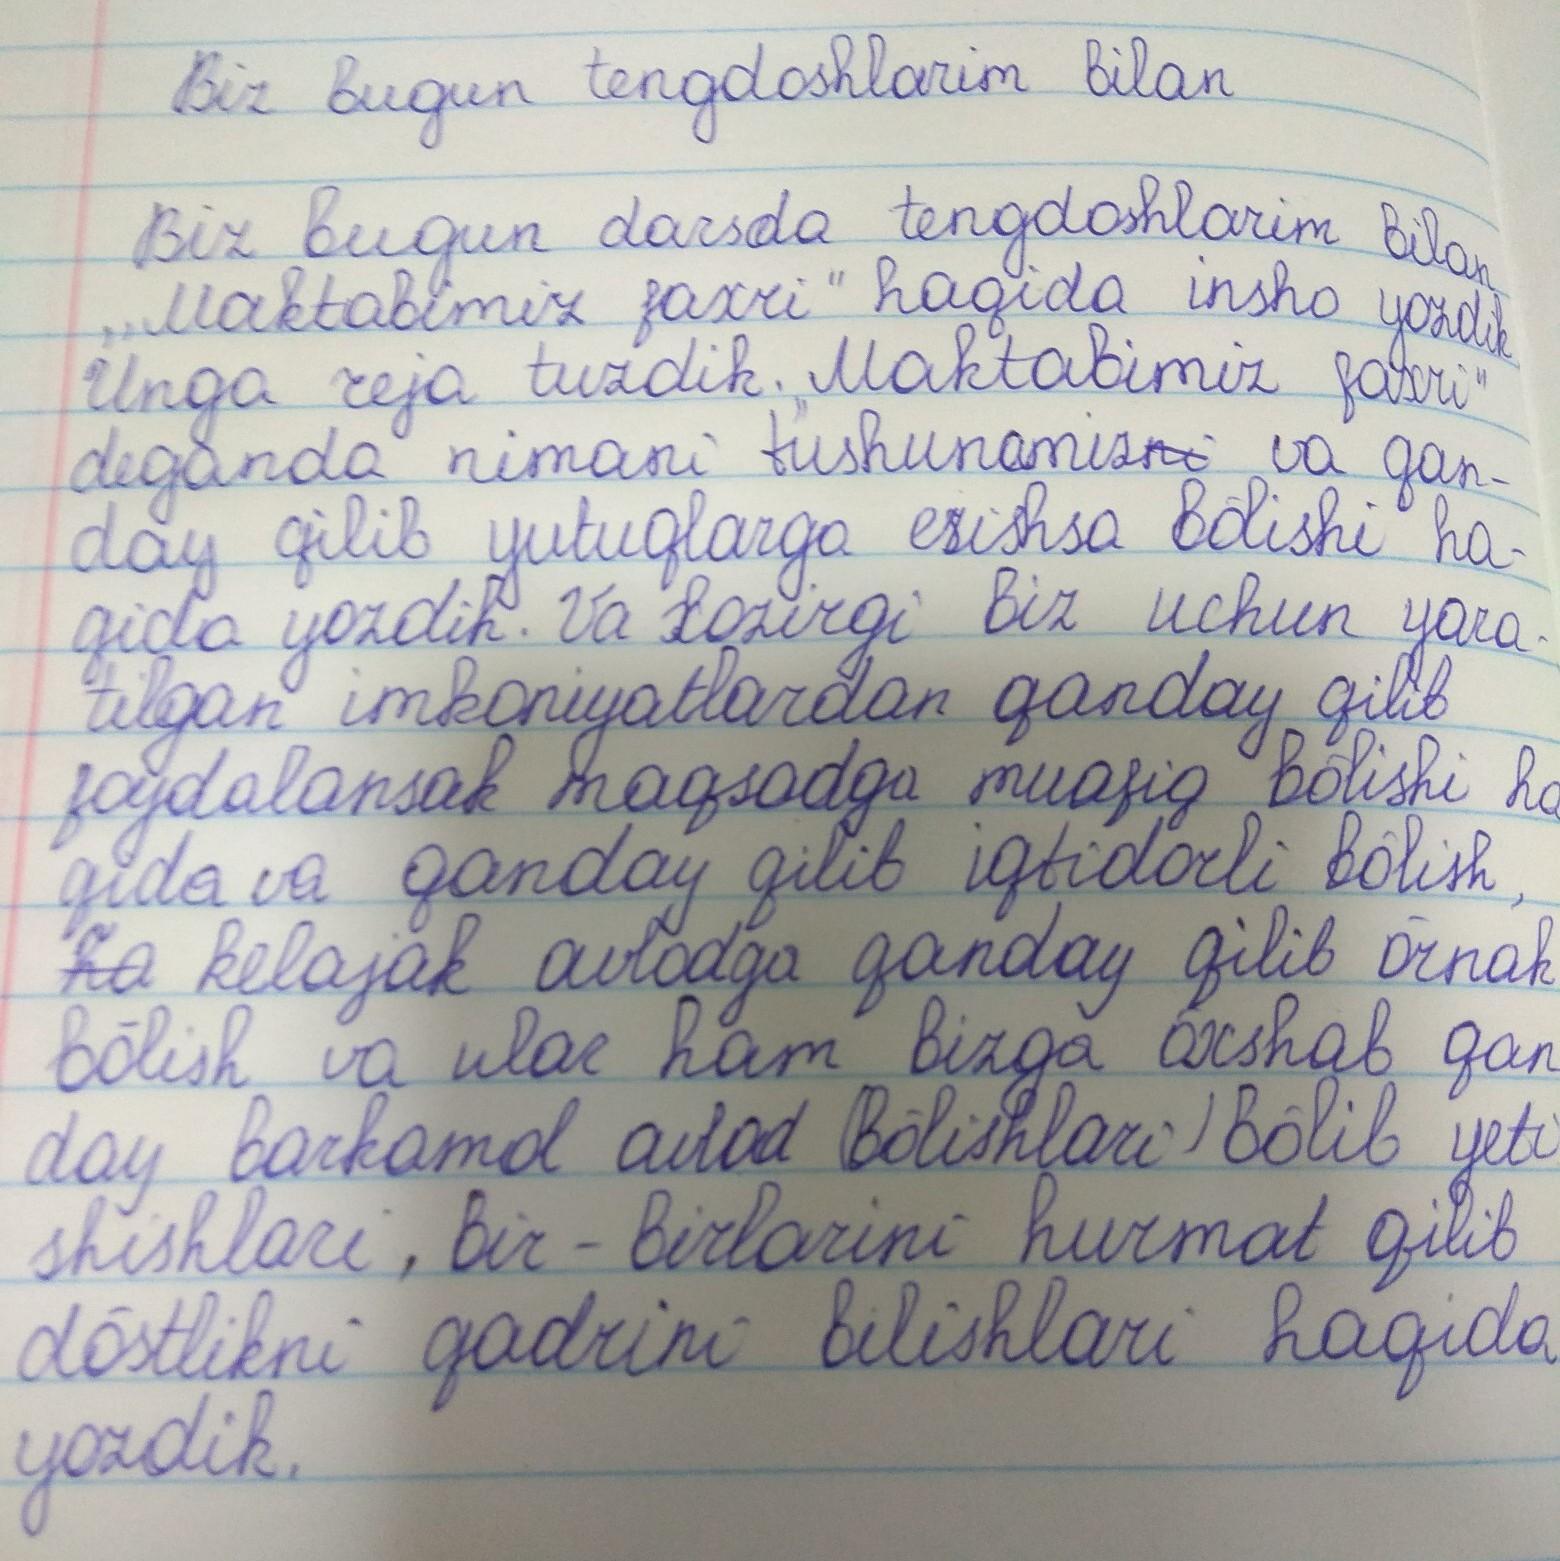 Biz bugun tengdoshlarim bilan
Biz bugun darsda tengdoshlarim bilan
„Maktabimiz faxri" haqida insho yozdik
Unga reja tuzdik. „Maktabimiz faxri"
deganda nimani tushunamiz va qan-
day qilib yutuqlarga erishsa bōlishi ha-
qida yozdik. Va xozirgi biz uchun yara-
tilgan imkoniyatlardan qanday qilib
foydalansak maqsadga muafiq bōlishi ha
qida va qanday qilib iqtidorli bōlish,
kelajak avlodga qanday qilib ōrnak
bōlish va ular ham bizga ōxshab qan
day barkamol avlod (bōlishlari) bōlib yeti
shishlari, bir-birlarini hurmat qilib
dōstlikni qadrini bilishlari haqida
yozdik.